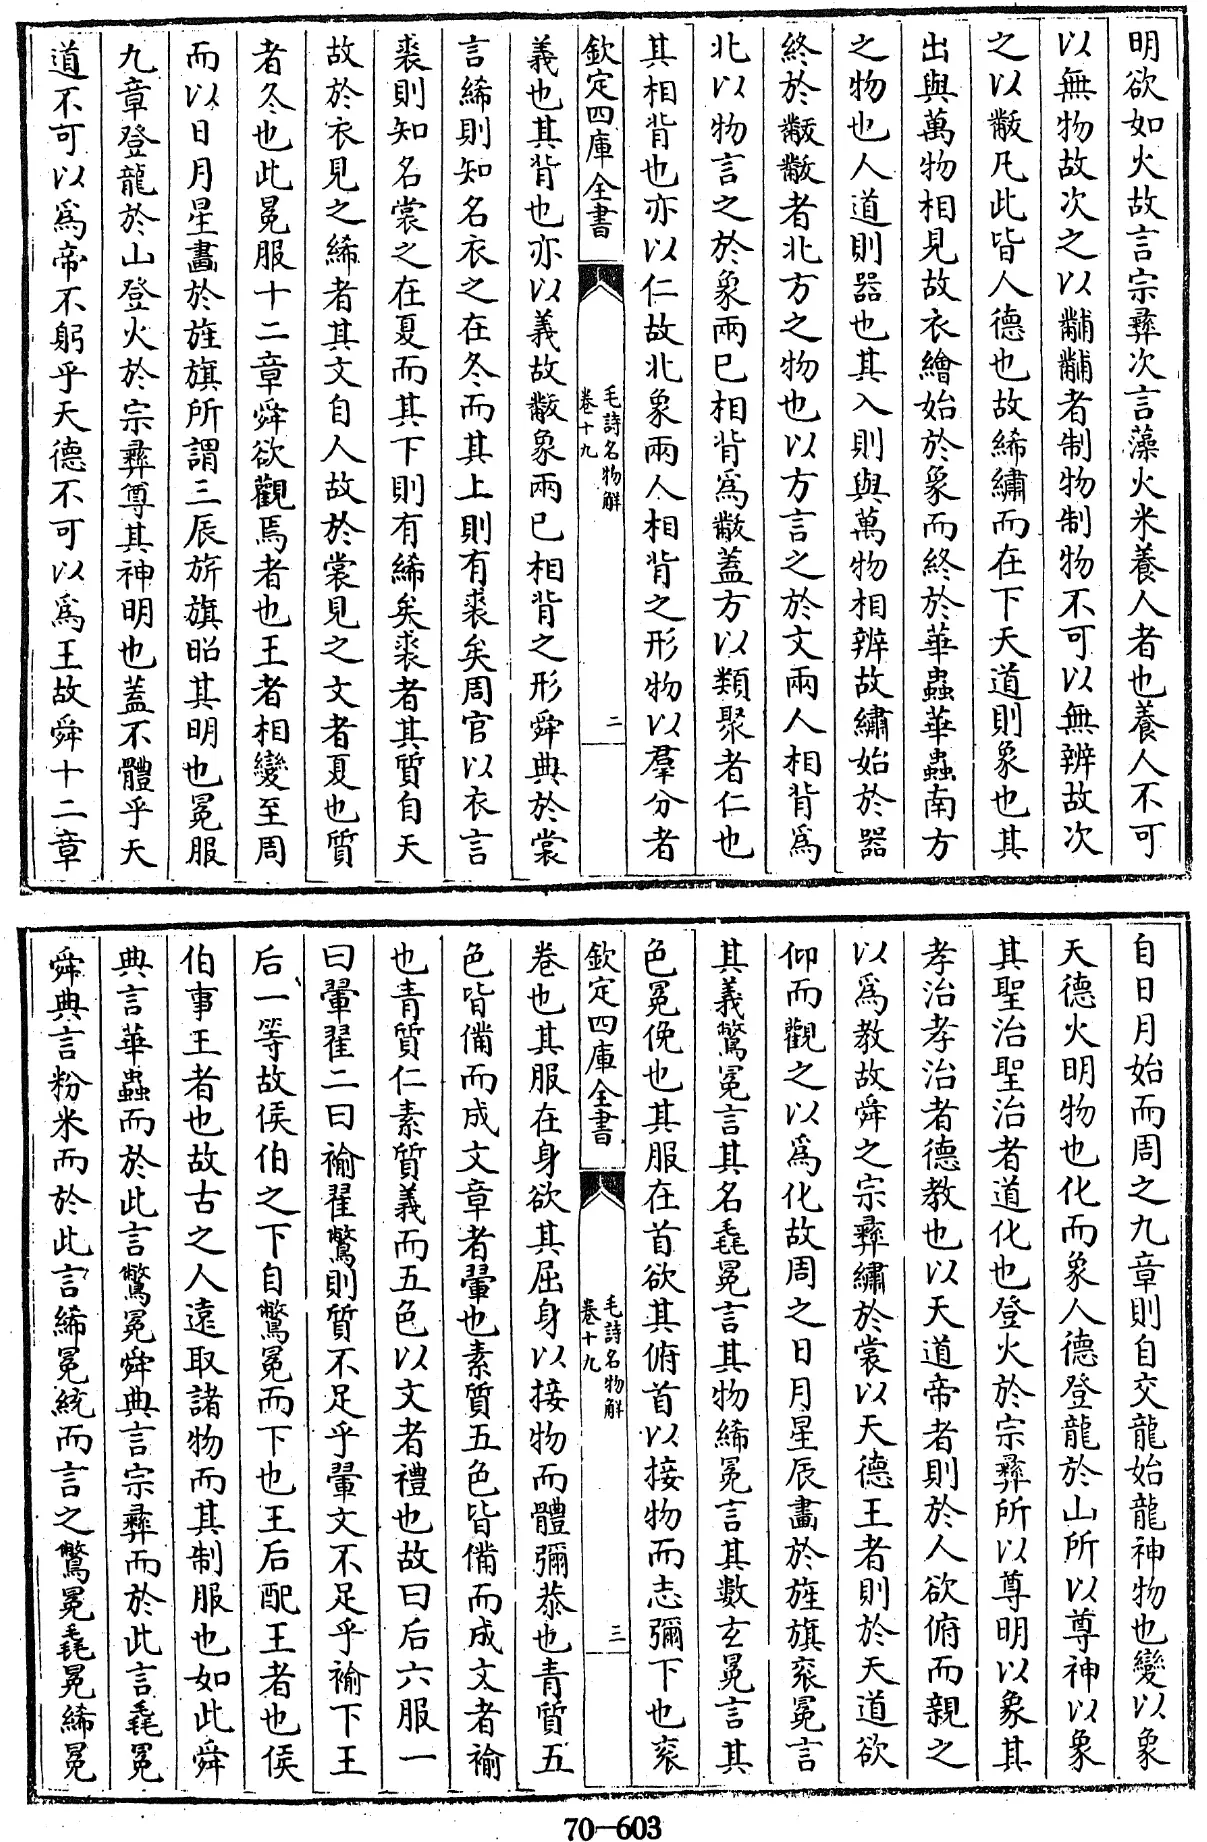 明欲如火故言宗彝次言藻火米養人者也養人不可
以無物故次之以黼黼者制物制物不可以無辨故次
之以黻凡此皆人德也故絺繡而在下天道則象也其
出與萬物相見故衣繪始於象而終於華蟲華蟲南方
之物也人道則器也其入則與萬物相辨故繡始於器
終於黻黻者北方之物也以方言之於文兩人相背為
北以物言之於象兩已相背為黻蓋方以類聚者仁也
其相背也亦以仁故北象兩人相背之形物以羣分者
欽定四庫全書
毛詩名物解
卷十九
二
義也其背也亦以義故黻象兩已相背之形舜典於裳
言絺則知名衣之在冬而其上則有裘矣周官以衣言
裘則知名裳之在夏而其下則有絺矣裘者其質自天
故於衣見之絺者其文自人故於裳見之文者夏也質
者冬也此冕服十二章舜欲觀焉者也王者相變至周
而以日月星畫於旌旗所謂三辰旂旗昭其明也冕服
九章登龍於山登火於宗彝尊其神明也蓋不體乎天
道不可以為帝不躬乎天德不可以為王故舜十二章
自日月始而周之九章則自交龍始龍神物也變以象
天德火明物也化而象人德登龍於山所以尊神以象
其聖治聖治者道化也登火於宗彝所以尊明以象其
孝治孝治者德教也以天道帝者則於人欲俯而親之
以為教故舜之宗彝繡於裳以天德王者則於天道欲
仰而觀之以為化故周之日月星辰畫於旌旗衮冕言
其義鷩冕言其名毳冕言其物絺冕言其數玄冕言其
色冕俛也其服在首欲其俯首以接物而志彌下也衮
欽定四庫全書
毛詩名物解
卷十九
三
卷也其服在身欲其屈身以接物而體彌恭也青質五
色皆備而成文章者翬也素質五色皆備而成文者褕
也青質仁素質義而五色以文者禮也故曰后六服一
曰翬翟二曰褕翟鷩則質不足乎翬文不足乎褕下王
后一等故侯伯之下自鷩冕而下也王后配王者也侯
伯事王者也故古之人遠取諸物而其制服也如此舜
典言華蟲而於此言鷩冕舜典言宗彝而於此言毳冕
舜典言粉米而於此言絺冕統而言之鷩冕毳冕絺冕
70-603